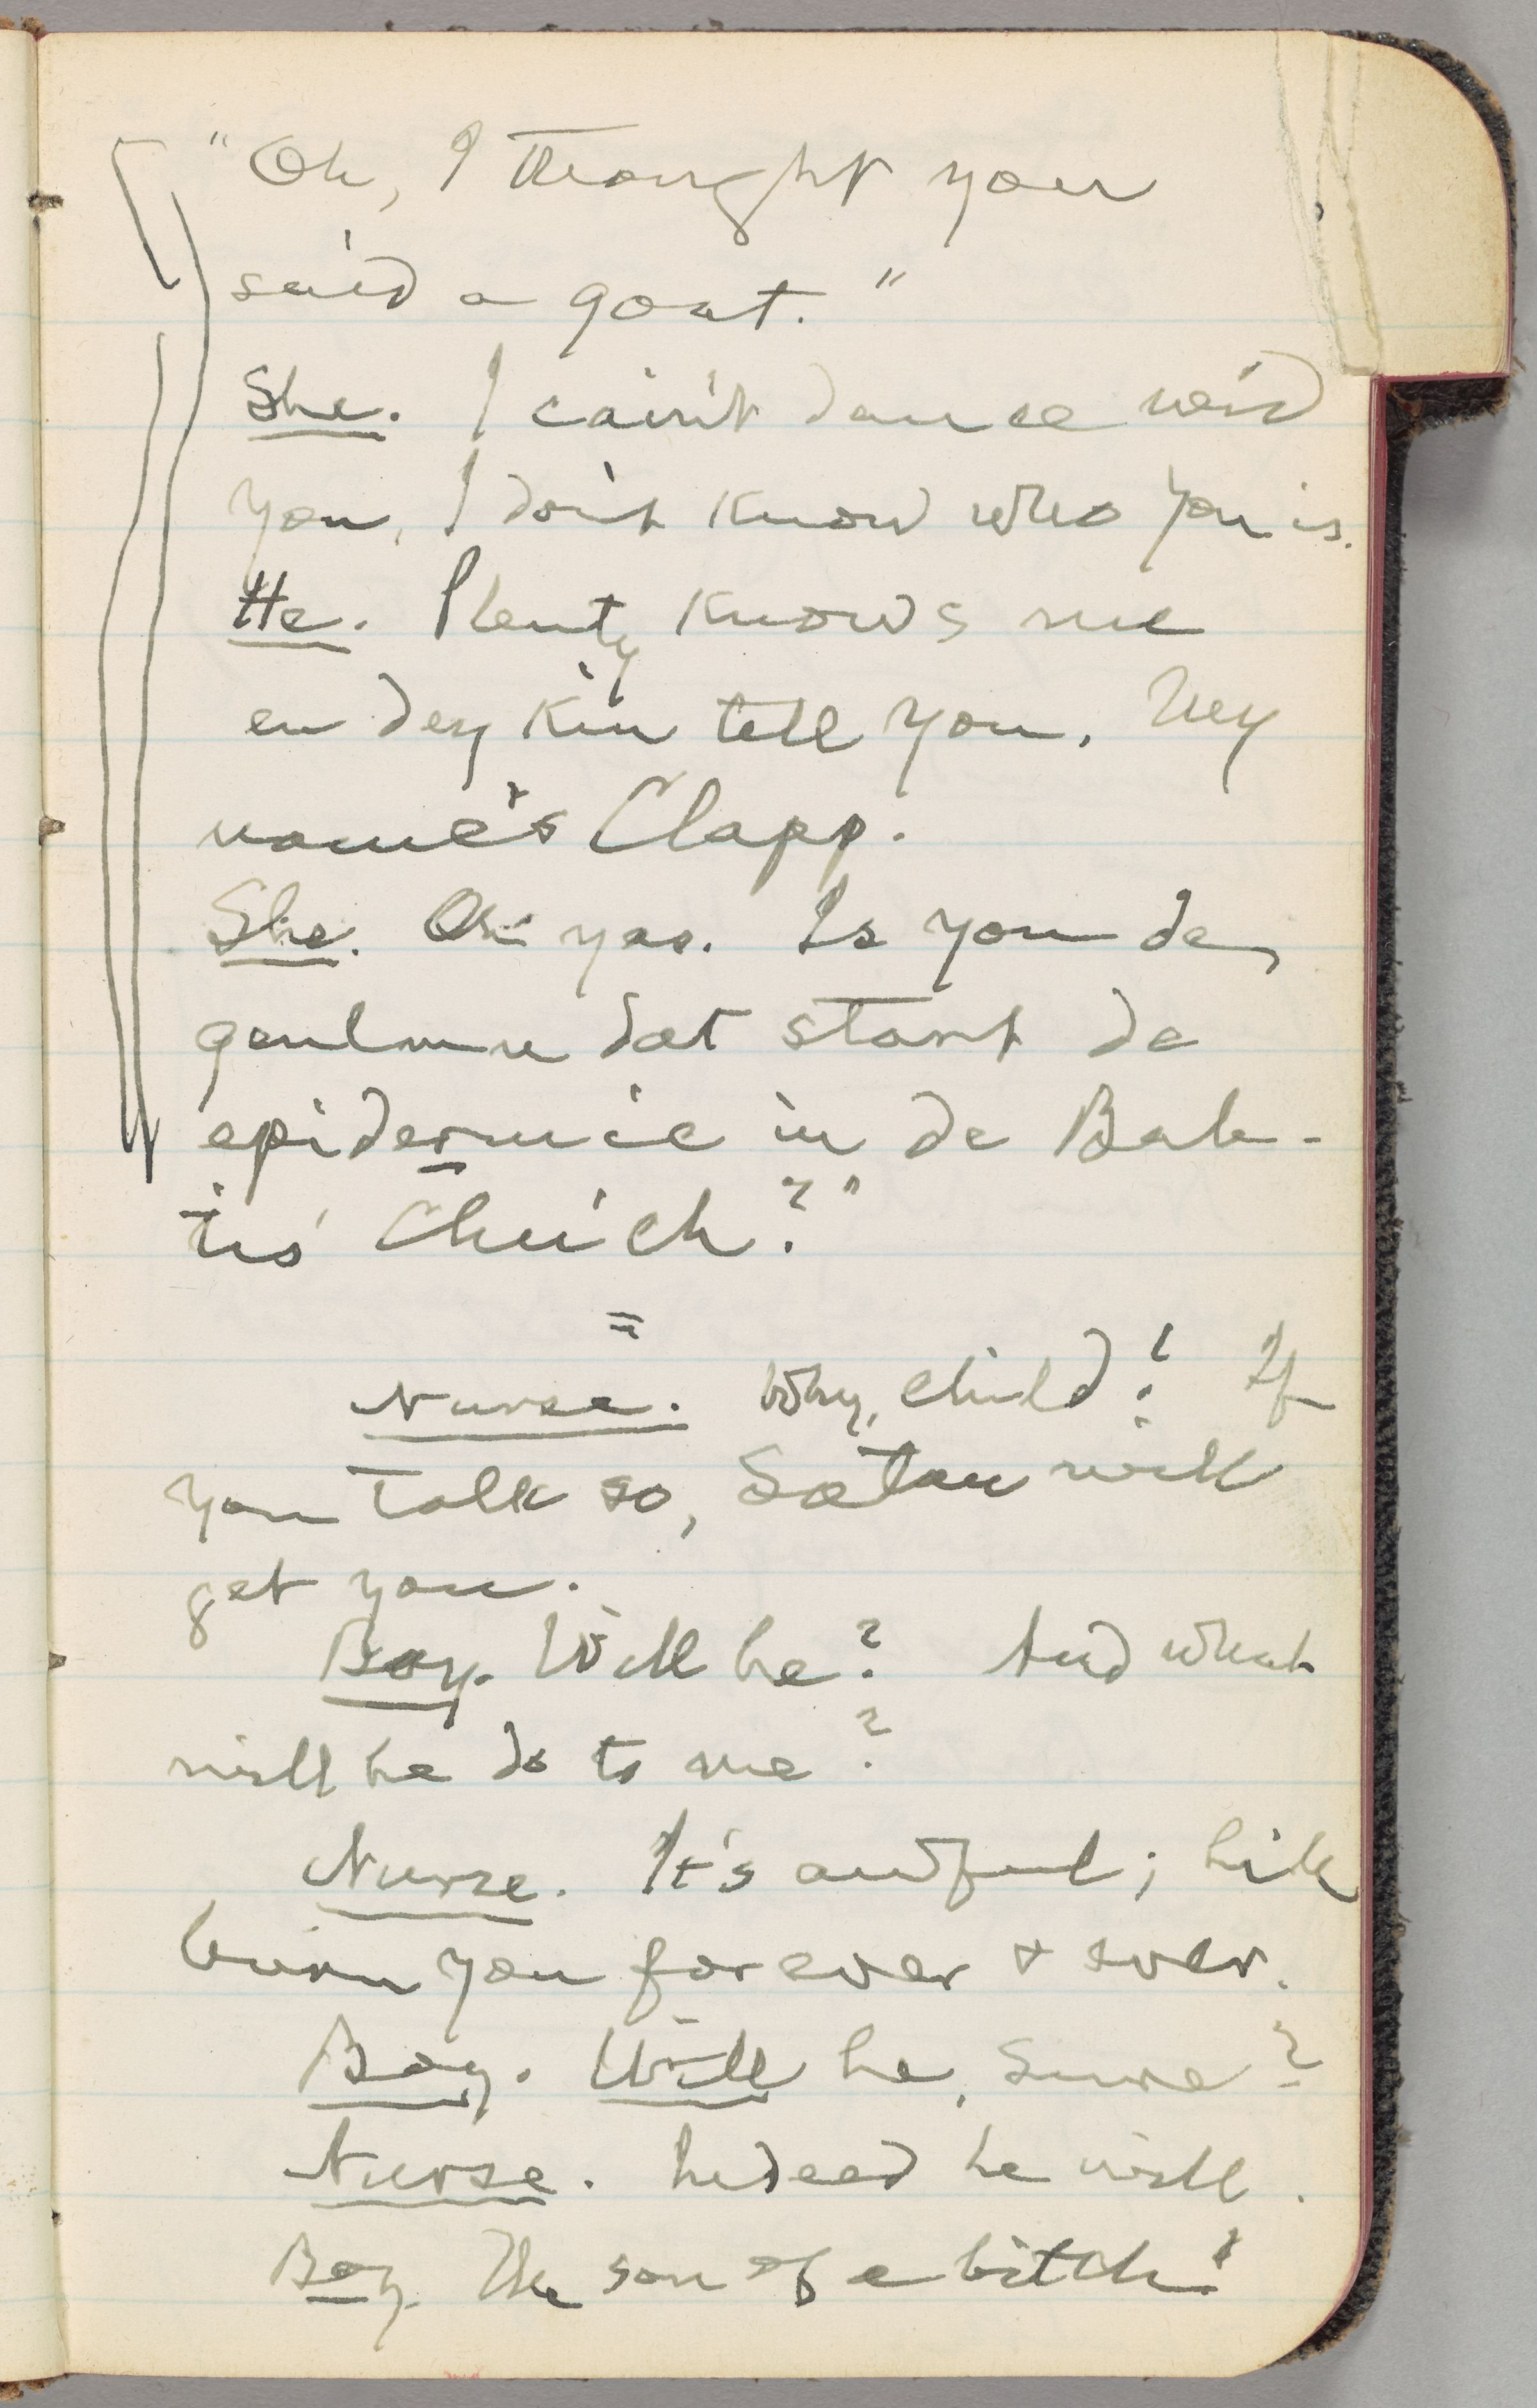 "Oh, I thought you
said a goat."
She. I cain't dance wid
you, I don't know who you is.
He. Plenty knows me
en dey kin tell you. My
name's Clapp.
She. Oh yas. Is you de
genlmn dat start de
epidermic in de Bab-
tis' Chu'ch?"
=
Nurse. Why, child! If
you talk so, Satan will
get you.
Boy. Will he? And what
will he do to me?
Nurse. It's awful; he'll
burn you forever & ever.
Boy. Will he, sure?
Nurse. Indeed he will.
Boy. The son of a bitch!